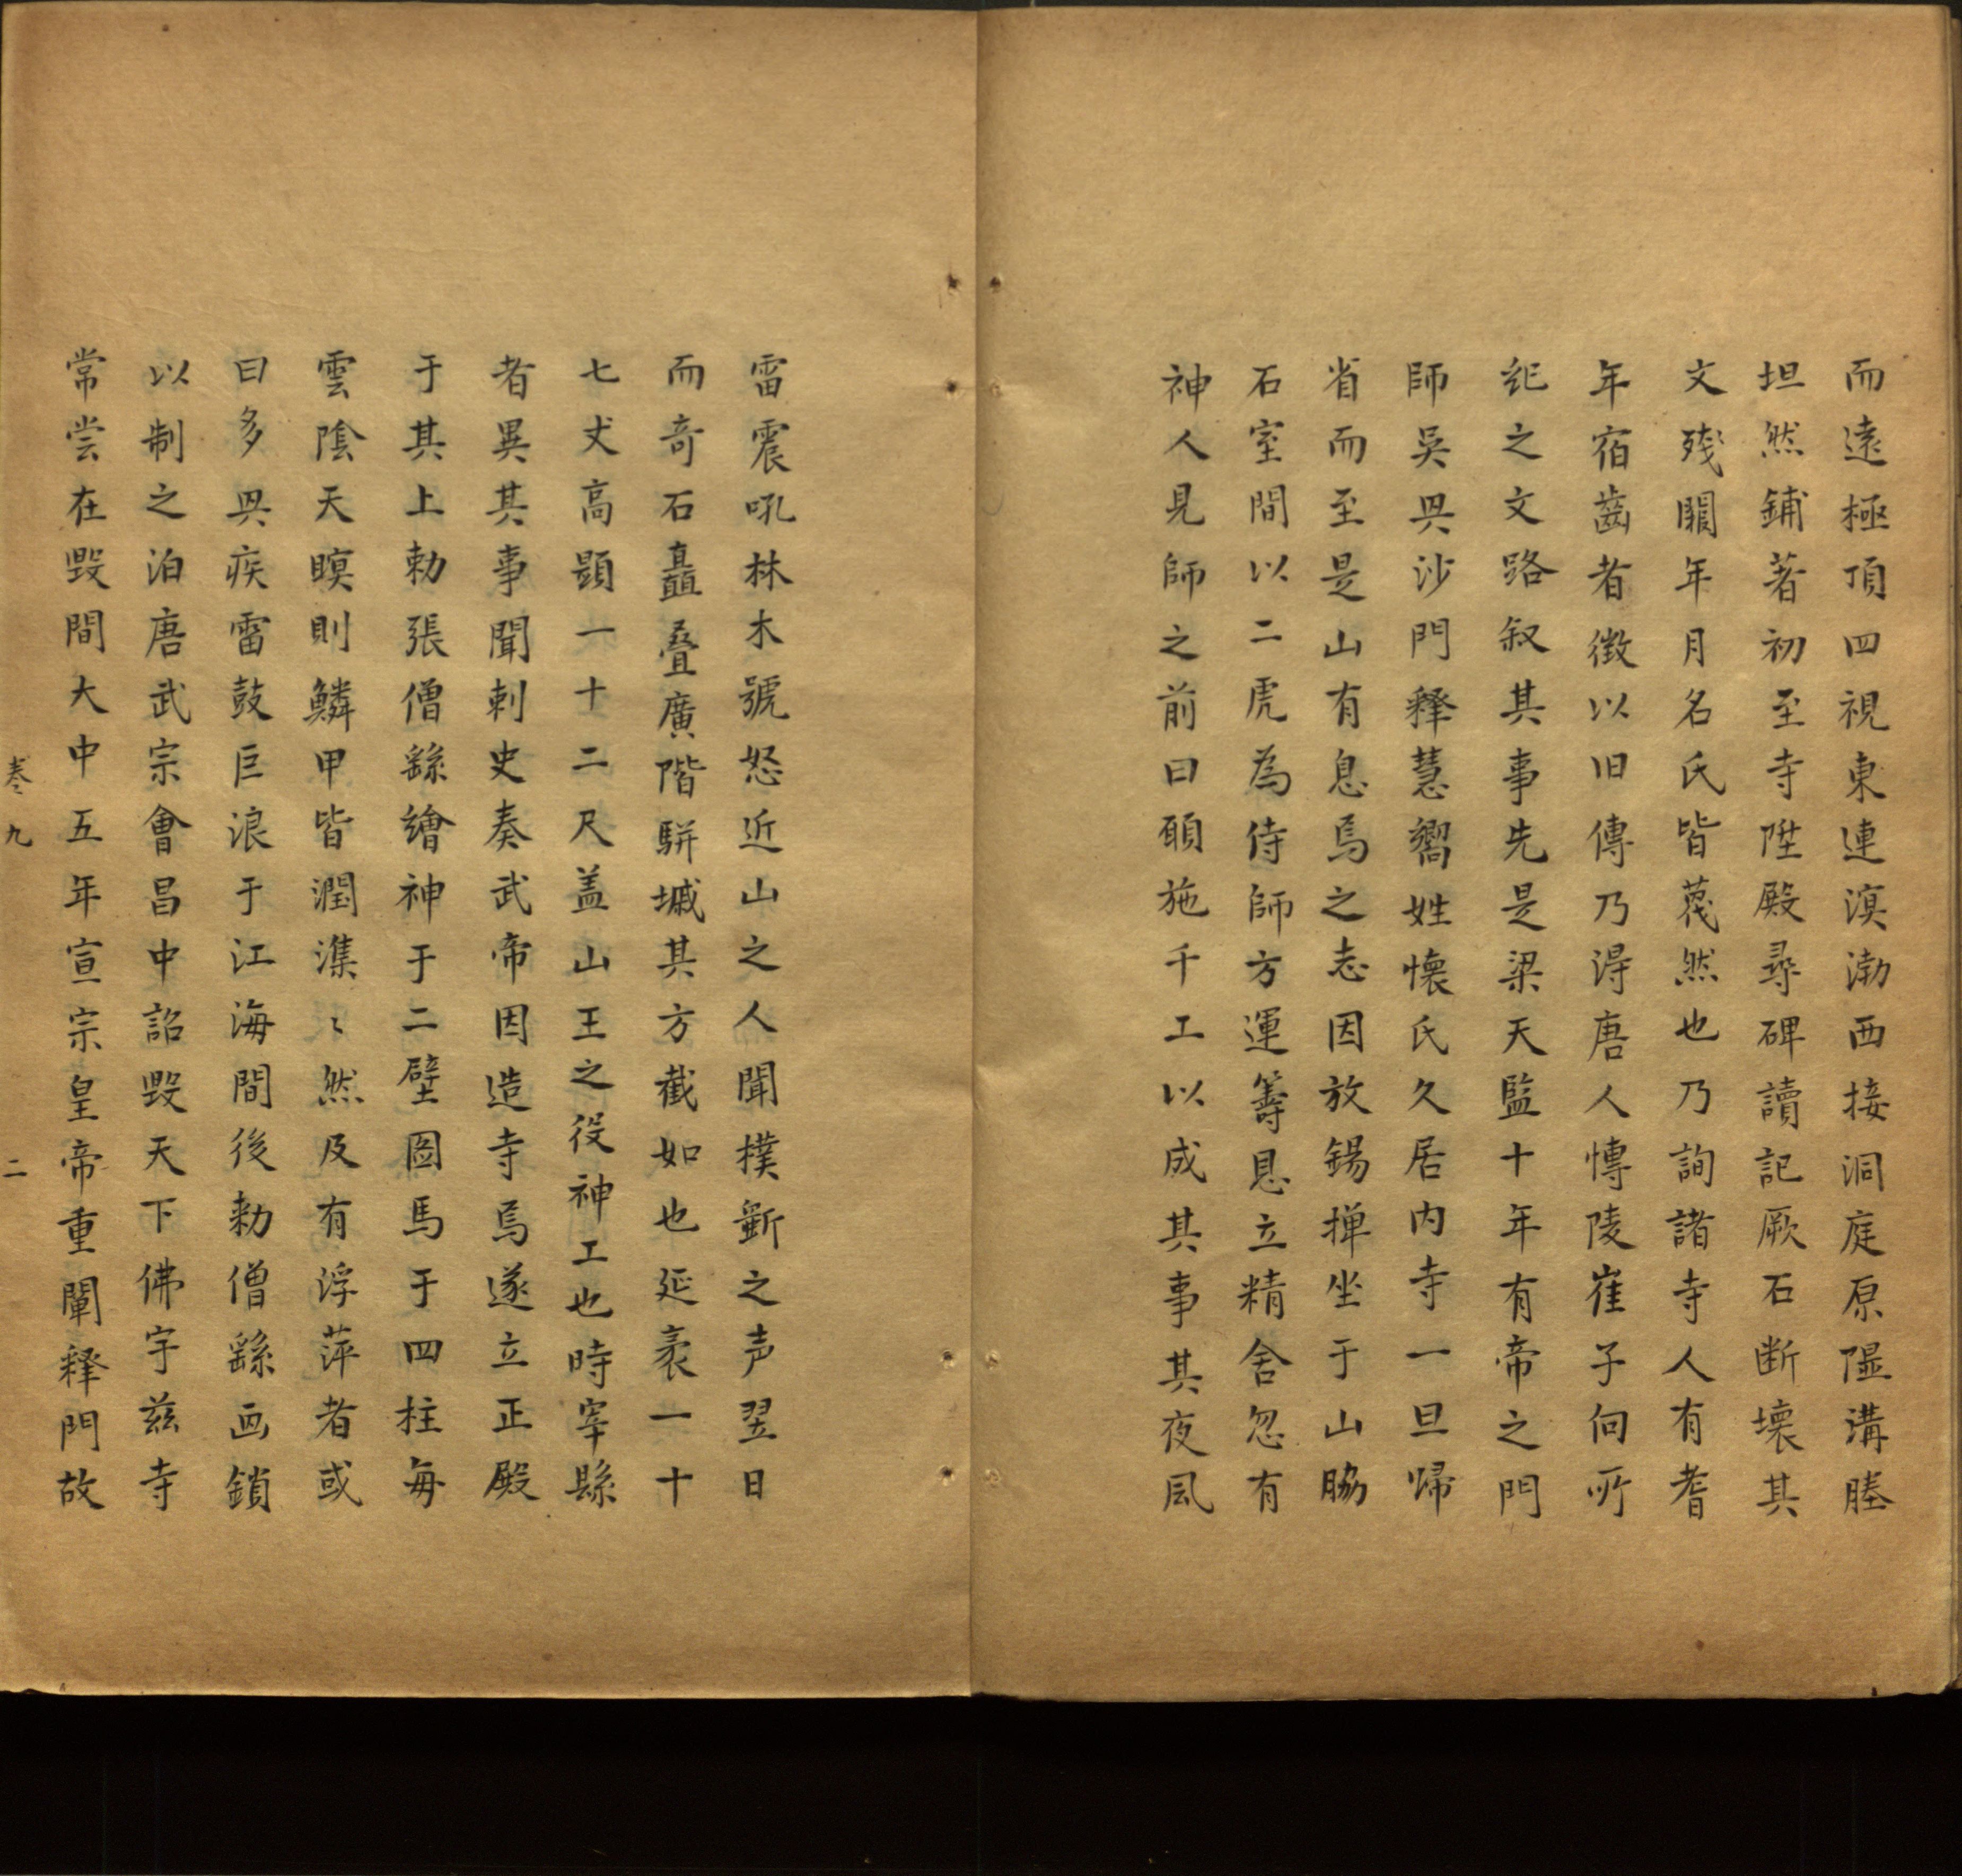 而遠極頂四視東連溟渤西接洞庭原隰溝塍
坦然鋪著初至寺陞殿尋碑讀記厥石断壞其
文殘闕年月名氏皆蔑然也乃詢諸寺人有耆
年宿齒者徴以旧傳乃淂唐人愽陵崔子向所
紀之文路叙其事先是梁天監十年有帝之門
師吳興沙門釋慧嚮姓懷氏久居内寺一旦歸
省而至是山有息焉之志因放錫禅坐于山脇
石室間以二虎為侍師方運籌息立精舍忽有
神人見師之前曰願施千工以成其事其夜風
雷震吼林木號怒近山之人聞樸斵之声翌日
而奇石矗疊廣階駢墄其方截如也延袤一十
七丈高顕一十二尺盖山王之役神工也時宰縣
者異其事聞刺史奏武帝因造寺焉遂立正殿
于其上勅張僧繇繪神于二壁圖馬于四柱每
雲陰天暝則鱗甲皆潤潗〻然及有浮萍者或
曰多興疾雷鼓巨浪于江海間後勅僧繇画鎖
以制之泊唐武宗會昌中詔毀天下佛宇兹寺
常尝在毀間大中五年宣宗皇帝重闡釋門故
卷九 二